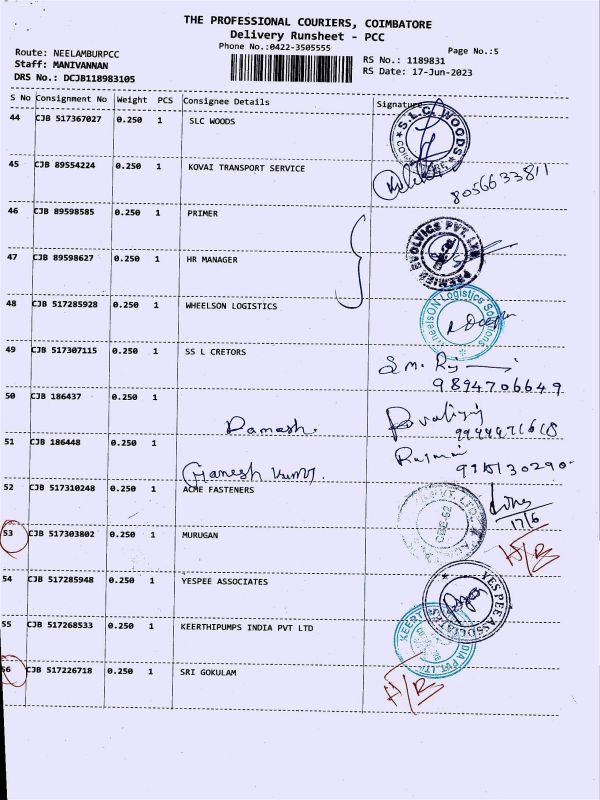 THE PROFESSIONAL COURIERS, COIMBATORE
Delivery Runsheet - PCC
Phone No.:0422-3505555
Page No.:5
Route: NEELAMBURPCC
RS No.: 1189831
Staff: MANIVANNAN
RS Date: 17-Jun-2023
DRS No.: DCJB118983105
S No Consignment No Weight PCS Consignee Details Signature
44 CJB 517367027 0.250 1 SLC WOODS
S.L.C. WOODS
45 CJB 89554224 0.250 1 KOVAI TRANSPORT SERVICE
8056633811
46 CJB 89598585 0.250 1 PRIMER
PREMIER EVOLVICS PVT. LTD
47 CJB 89598627 0.250 1 HR MANAGER
48 CJB 517285928 0.250 1 WHEELSON LOGISTICS
WheelsON-Logistics Solutions
49 CJB 517307115 0.250 1 SS L CRETORS
S.M. Raj
9894706649
50 CJB 186437 0.250 1
Ramesh.
9944471618
51 CJB 186448 0.250 1
Ganesh kumar.
52 CJB 517310248 0.250 1 ACME FASTENERS
PVT. LTD.
17/6
53 CJB 517303802 0.250 1 MURUGAN
H/B
54 CJB 517285948 0.250 1 YESPEE ASSOCIATES
YES PEE ASSOCIATES
55 CJB 517268533 0.250 1 KEERTHIPUMPS INDIA PVT LTD
56 CJB 517226718 0.250 1 SRI GOKULAM
H/B